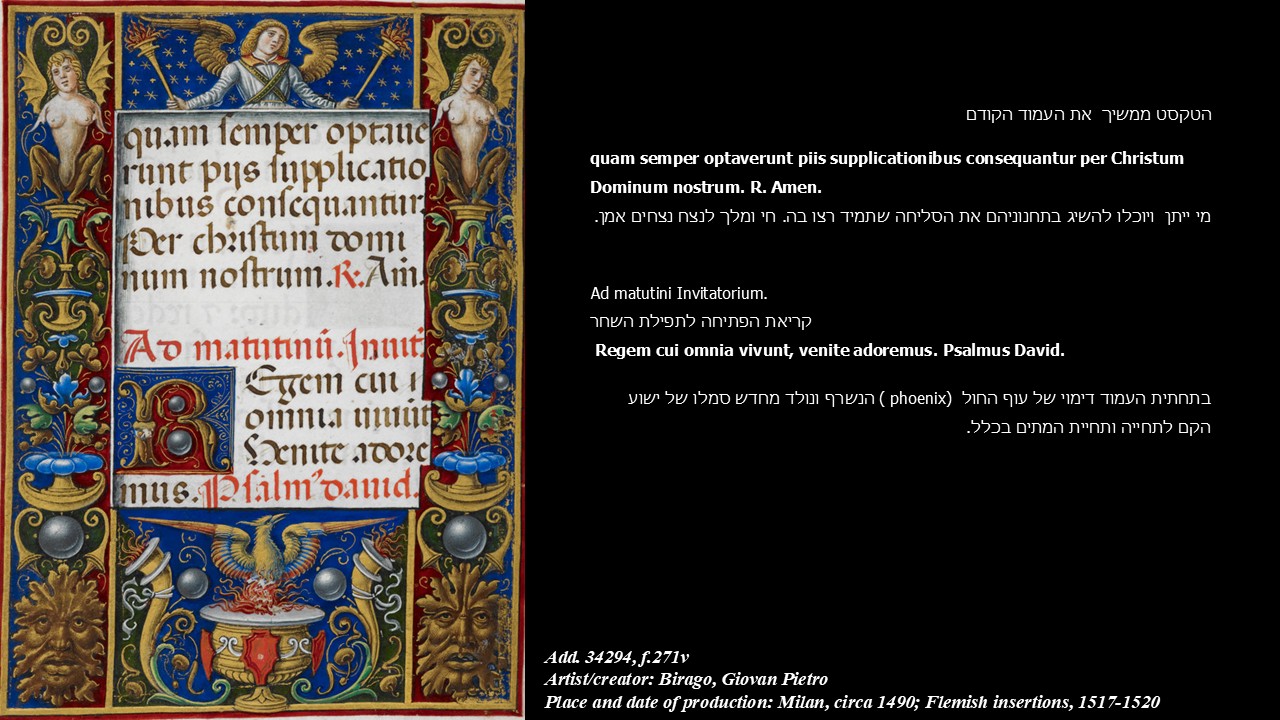 quam semper optaue
runt pijs supplicatio
nibus consequantur
Per christum domi
num nostrum. R: Am̄.
Ad matutinū. Inuit.
REgem cui
omnia uiuūt
Uenite adore
mus. Psalm' dauid.
הטקסט ממשיך את העמוד הקודם
quam semper optaverunt piis supplicationibus consequantur per Christum
Dominum nostrum. R. Amen.
מי ייתך ויוכלו להשיג בתחנוניהם את הסליחה שתמיד רצו בה. חי ומלך לנצח נצחים אמן.
Ad matutini Invitatorium.
קריאת הפתיחה לתפילת השחר
Regem cui omnia vivunt, venite adoremus. Psalmus David.
בתחתית העמוד דימוי של עוף החול (phoenix ) הנשרף ונולד מחדש סמלו של ישוע
הקם לתחייה ותחיית המתים בכלל.
Add. 34294, f.271v
Artist/creator: Birago, Giovan Pietro
Place and date of production: Milan, circa 1490; Flemish insertions, 1517-1520